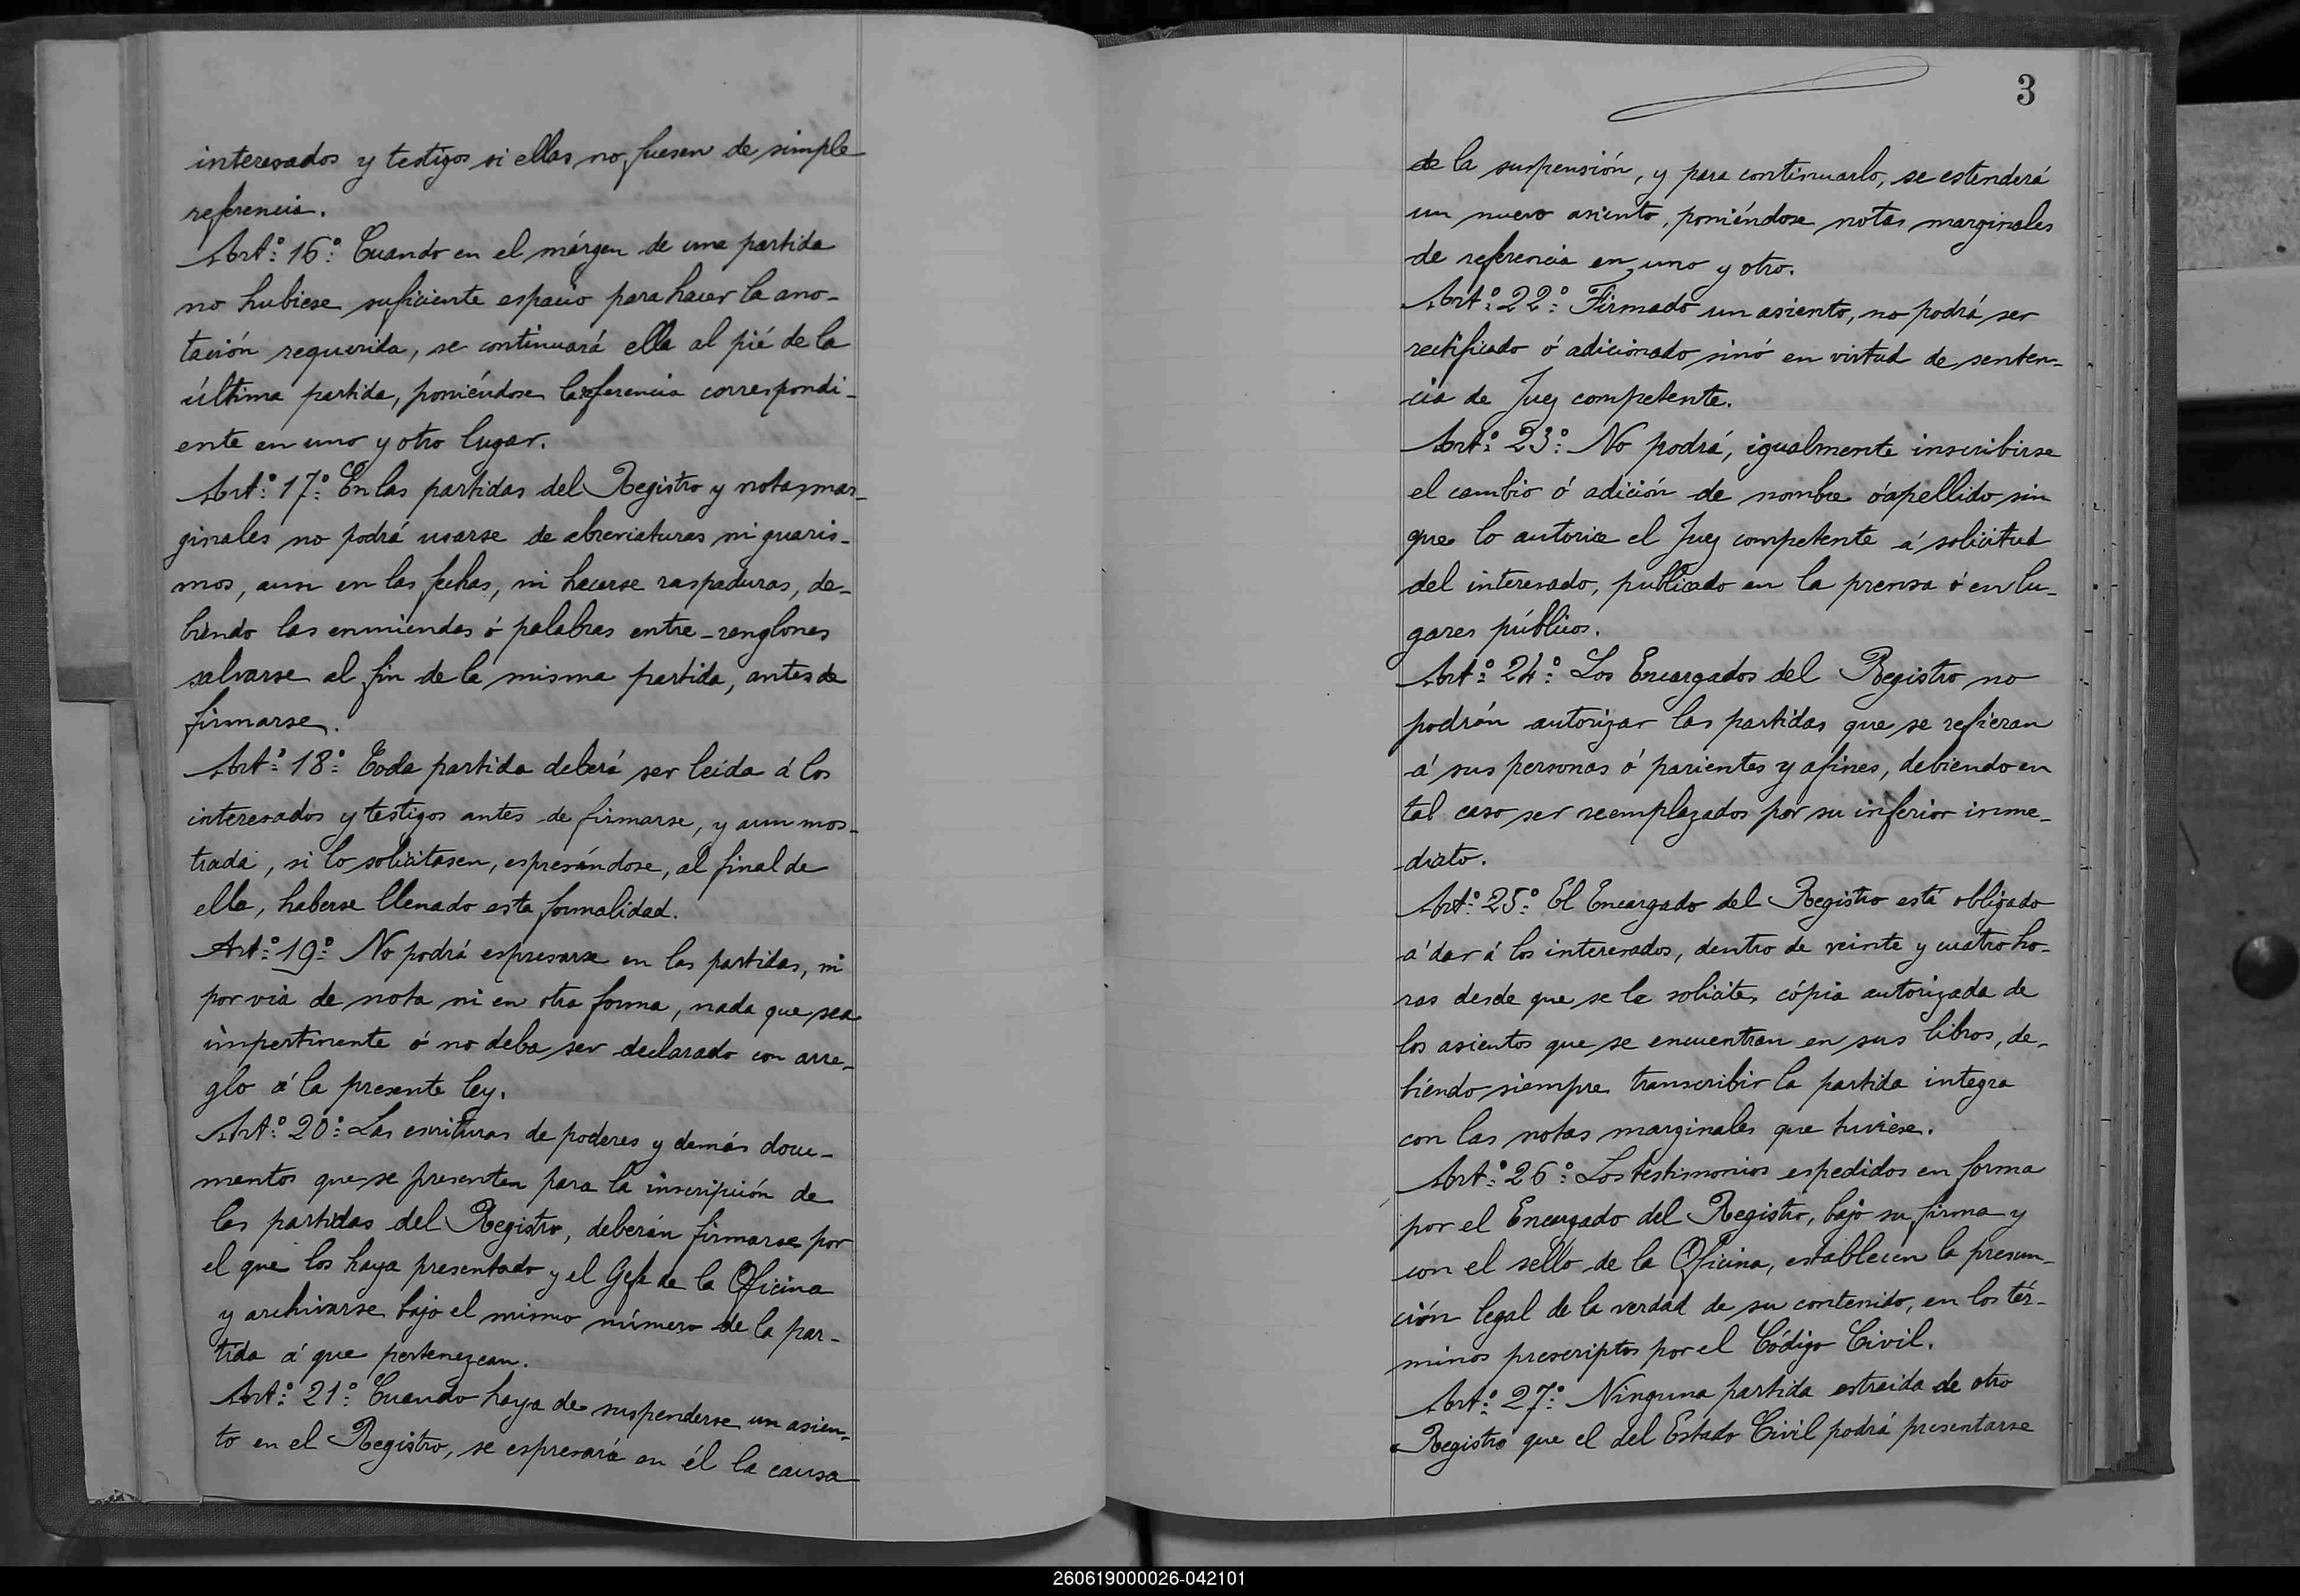 interesados y testigos si ellas no fuesen de simple
referencia.
Art.º 16º: Cuando en el márgen de una partida
no hubiese suficiente espacio para hacer la ano-
tación requerida, se continuará ella al pié de la
última partida, poniéndose la referencia correspondi-
ente en uno y otro lugar.
Art.º 17º: En las partidas del Registro y notas mar-
ginales no podrá usarse de abreviaturas ni guaris-
mos, aun en las fechas, ni hacerse raspaduras, de-
biendo las enmiendas ó palabras entre-renglones
salvarse al fin de la misma partida, antes de
firmarse.
Art.º 18º: Toda partida deberá ser leida á los
interesados y testigos antes de firmarse, y aun mos-
trada, si lo solicitasen, espresándose, al final de
ella, haberse llenado esta formalidad.
Art.º 19º: No podrá espresarse en las partidas, ni
por via de nota ni en otra forma, nada que sea
impertinente ó no deba ser declarado con arre-
glo á la presente ley.
Art.º 20º: Las escrituras de poderes y demás docu-
mentos que se presenten para la inscripción de
las partidas del Registro, deberán firmarse por
el que los haya presentado y el Gefe de la Oficina
y archivarse bajo el mismo número de la par-
tida á que pertenezcan.
Art.º 21º: Cuando haya de suspenderse un asien-
to en el Registro, se espresará en él la causa
3
de la suspensión, y para continuarlo, se estenderá
un nuevo asiento, poniéndose notas marginales
de referencia en uno y otro.
Art.º 22º: Firmado un asiento, no podrá ser
rectificado ó adicionado sinó en virtud de senten-
cia de Juez competente.
Art.º 23º: No podrá, igualmente inscribirse
el cambio ó adición de nombre ó apellido sin
que lo autorice el Juez competente á solicitud
del interesado, publicado en la prensa ó en lu-
gares públicos.
Art.º 24º: Los Encargados del Registro no
podrán autorizar las partidas que se refieran
á sus personas ó parientes y afines, debiendo en
tal caso ser reemplazados por su inferior inme-
diato.
Art.º 25º: El Encargado del Registro está obligado
á dar á los interesados, dentro de veinte y cuatro ho-
ras desde que se le solicite, cópia autorizada de
los asientos que se encuentran en sus libros, de-
biendo siempre transcribir la partida integra
con las notas marginales que tuviese.
Art.º 26º: Los testimonios espedidos en forma
por el Encargado del Registro, bajo su firma y
con el sello de la Oficina, establecen la presun-
ción legal de la verdad de su contenido, en los tér-
minos prescriptos por el Código Civil.
Art.º 27º: Ninguna partida estraida de otro
Registro que el del Estado Civil podrá presentarse
260619000026-042101